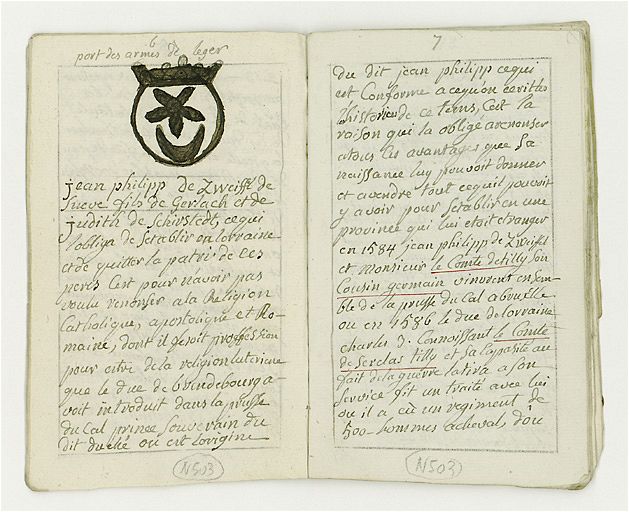 6
port des armes de leger
jean philipp de Zweiffel de
Sueve fils de Gerlach et de
judith de Schivstedt, ce qui
l'obliga de setablir en lorraine
et de quitter la patri de ces
peres c'est pour n'avoir pas
voulu renonser a la Religion
Catholique, apostolique et Ro-
maine, dont il fesoit proffession
pour entre de la religion luterienne
que le duc de brindebourg a-
voit introduit dans la prusse
du Cal prince souverain du
dit duché ou est lorigine
N503
7
du dit jean philipp ce qui
est Conforme a ce qu'on ecrit les
historien de ce tems, C'est la
raison qui la obligé a renonser
a tous les avantages que sa
naissance luy pouvoit donner
et a vendre tout ce quil pouvoit
y avoir pour setablir en une
province qui lui etoit etranger
en 1584 jean philipp de Zweiffel
et monsieur le Comte de tilly son
Cousin germain vinrent ensem-
ble de la prusse du Cal a bruxelle
ou en 1586 le duc de lorraine
charles 3. Connoissant le Comte
de Serclas tilly et sa Capasité au
fait de la guerre latira a son
service fit un traité avec lui
ou il a eü un regiment de
500 hommes a cheval, d'ou
N503